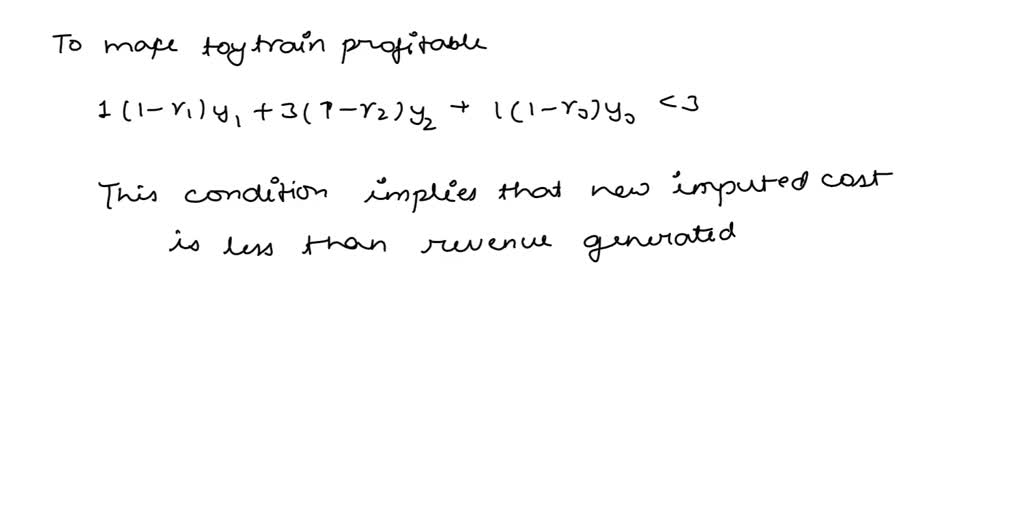 To make toytrain profitable
1(1-r₁)y₁ + 3(1-r₂)y₂ + 1(1-r₃)y₃ <3
This condition implies that new imputed cost
is less than revenue generated